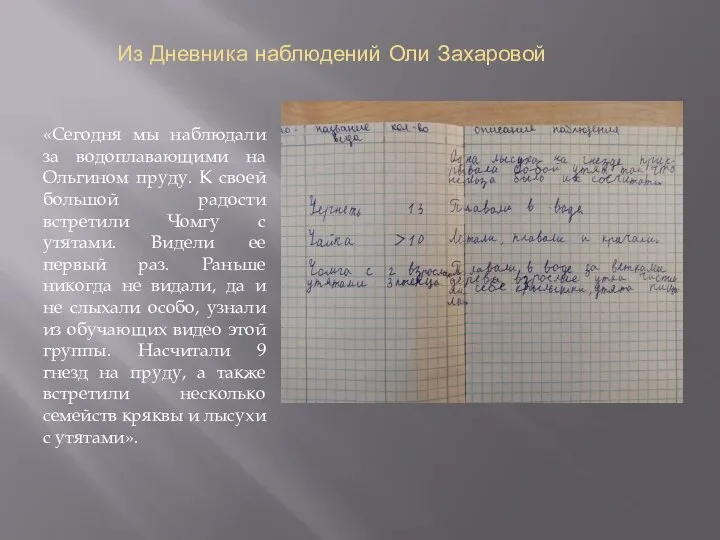 Из Дневника наблюдений Оли Захаровой
«Сегодня мы наблюдали
за водоплавающими на
Ольгином пруду. К своей
большой радости
встретили Чомгу с
утятами. Видели ее
первый раз. Раньше
никогда не видали, да и
не слыхали особо, узнали
из обучающих видео этой
группы. Насчитали 9
гнезд на пруду, а также
встретили несколько
семейств кряквы и лысухи
с утятами».
название кол-во описание наблюдения
вида
Одна лысуха на гнезде прик-
рывала собой утят так что
нельзя было их сосчитать.
Чернеть 13 Плавали в воде.
Чайка >10 Летали, плавали и кричали.
Чомга с 2 взрослых Плавали в воде за ветками
утятами 3 птенца дерева взрослые утка чисти
ла себе крылышки, утята